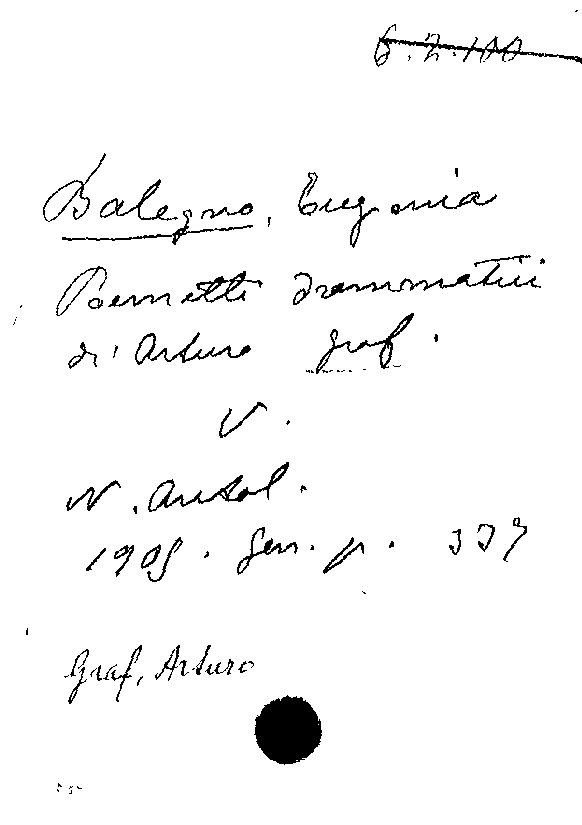 6.2.100
Balegno, Eugenia
Poemetti drammatici
di Arturo Graf.
V.
N. Antol.
1905. Gen. p. 337
Graf, Arturo